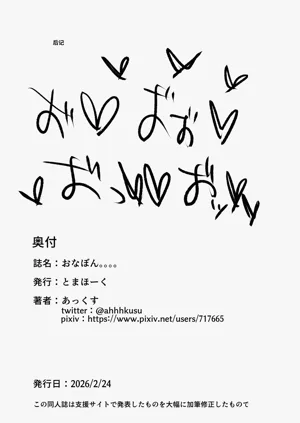 后记
お♡おぉ♡
おっ♡♡おッ♡
奥付
誌名：おなぼん。。。。
発行：とまほーく
著者：あっくす
twitter：@ahhhkusu
pixiv：https://www.pixiv.net/users/717665
発行日：2026/2/24
この同人誌は支援サイトで発表したものを大幅に加筆修正したもので